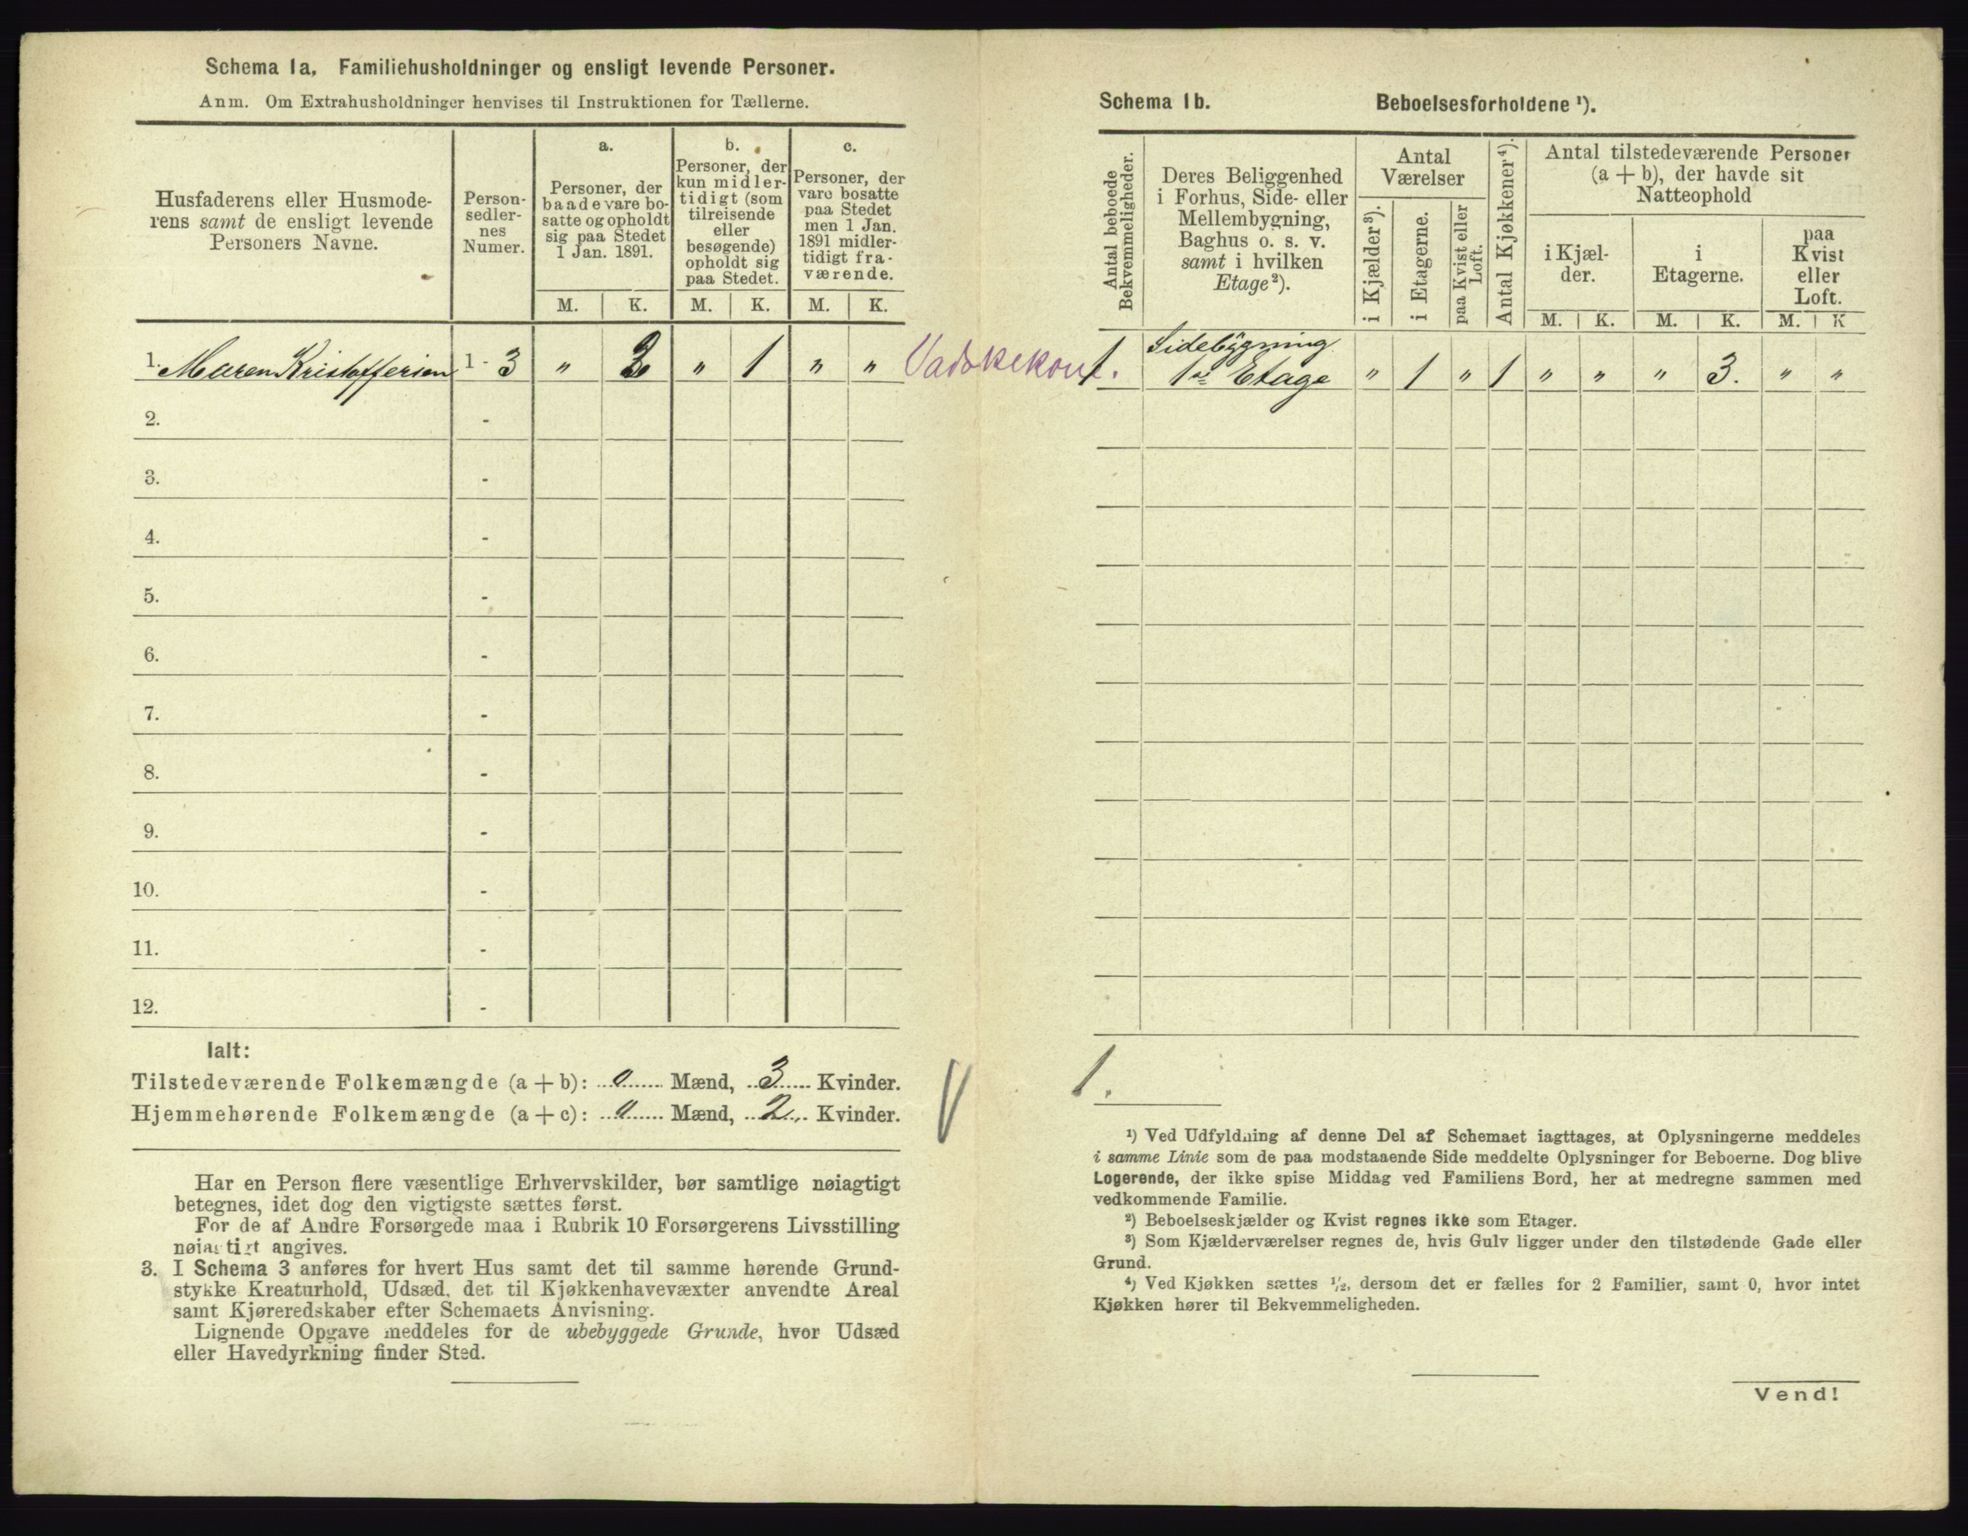 Schema 1a. Familiehusholdninger og ensligt levende Personer.
Anm. Om Extrahusholdninger henvises til Instruktionen for Tællerne.
Husfaderens eller Husmode-
rens samt de ensligt levende
Personers Navne.
Person-
sedler-
nes
Numer.
a.
Personer, der
baade vare bo-
satte og opholdt
sig paa Stedet
1 Jan. 1891.
b.
Personer, der
kun midler-
tidigt (som
tilreisende
eller
besøgende)
opholdt sig
paa Stedet.
c.
Personer, der
vare bosatte
paa Stedet
men 1 Jan.
1891 midler-
tidigt fra-
værende.
M. K. M. K. M. K.
1. Maren Kristoffersen 1 - 3 " 2 " 1 " " Vadskekone
2. -
3. -
4. -
5. -
6. -
7. -
8. -
9. -
10. -
11. -
12. -
Ialt:
Tilstedeværende Folkemængde (a + b): 0 Mænd, 3 Kvinder.
Hjemmehørende Folkemængde (a + c): 0 Mænd, 2 Kvinder.
Har en Person flere væsentlige Erhvervskilder, bør samtlige nøiagtigt
betegnes, idet dog den vigtigste sættes først.
For de af Andre Forsørgede maa i Rubrik 10 Forsørgerens Livsstilling
nøiagtigt angives.
3. I Schema 3 anføres for hvert Hus samt det til samme hørende Grund-
stykke Kreaturhold, Udsæd, det til Kjøkkenhavevæxter anvendte Areal
samt Kjøreredskaber efter Schemaets Anvisning.
Lignende Opgave meddeles for de ubebyggede Grunde, hvor Udsæd
eller Havedyrkning finder Sted.
Schema 1b. Beboelsesforholdene ¹).
Antal beboede
Bekvemmeligheder.
Deres Beliggenhed
i Forhus, Side- eller
Mellembygning,
Baghus o. s. v.
samt i hvilken
Etage²).
Antal
Værelser
i Kjælder³).
i Etagerne.
paa Kvist eller
Loft.
Antal Kjøkkener⁴).
Antal tilstedeværende Personer
(a + b), der havde sit
Natteophold
i Kjæl-
der.
i
Etagerne.
paa
Kvist
eller
Loft.
M. K. M. K. M. K
Sidebygning
1. 1ste Etage " 1 " 1 " " " 3. " "
1.
¹) Ved Udfyldning af denne Del af Schemaet iagttages, at Oplysningerne meddeles
i samme Linie som de paa modstaaende Side meddelte Oplysninger for Beboerne. Dog blive
Logerende, der ikke spise Middag ved Familiens Bord, her at medregne sammen med
vedkommende Familie.
²) Beboelseskjælder og Kvist regnes ikke som Etager.
³) Som Kjælderværelser regnes de, hvis Gulv ligger under den tilstødende Gade eller
Grund.
⁴) Ved Kjøkken sættes ½, dersom det er fælles for 2 Familier, samt 0, hvor intet
Kjøkken hører til Bekvemmeligheden.
Vend!